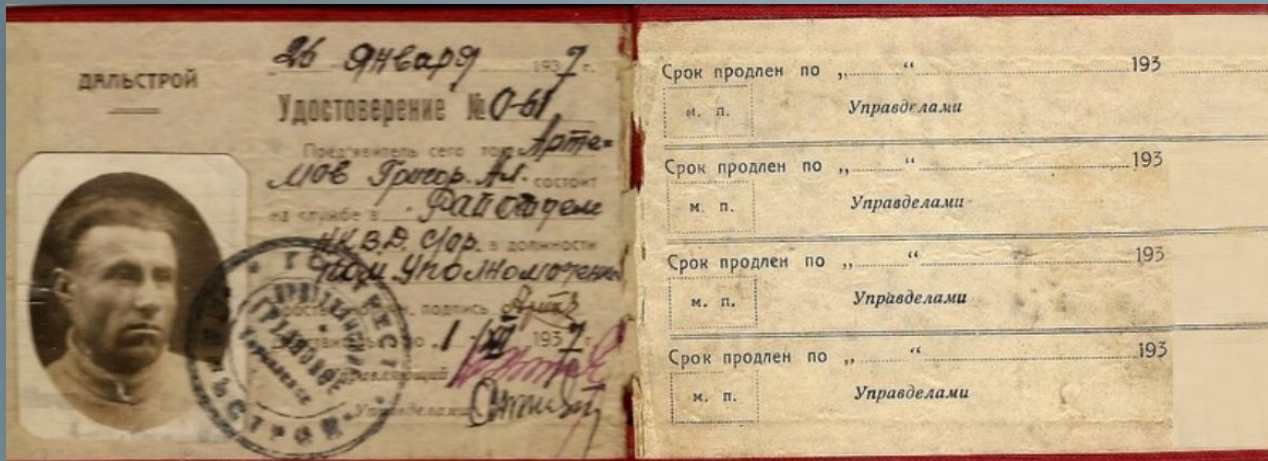 ДАЛЬСТРОЙ
26 января 1937 г.
Удостоверение № 0-61
Пред'явитель сего тов. Арте-
мов Григор. Ал. состоит
на службе в Райотделе
НКВД. С/ор. в должности
пом. Уполномоченн
подпись
1 1937 г.
Управляющий
Управделами
Срок продлен по „ “ 193
м. п. Управделами
Срок продлен по „ “ 193
м. п. Управделами
Срок продлен по „ “ 193
м. п. Управделами
Срок продлен по „ “ 193
м. п. Управделами